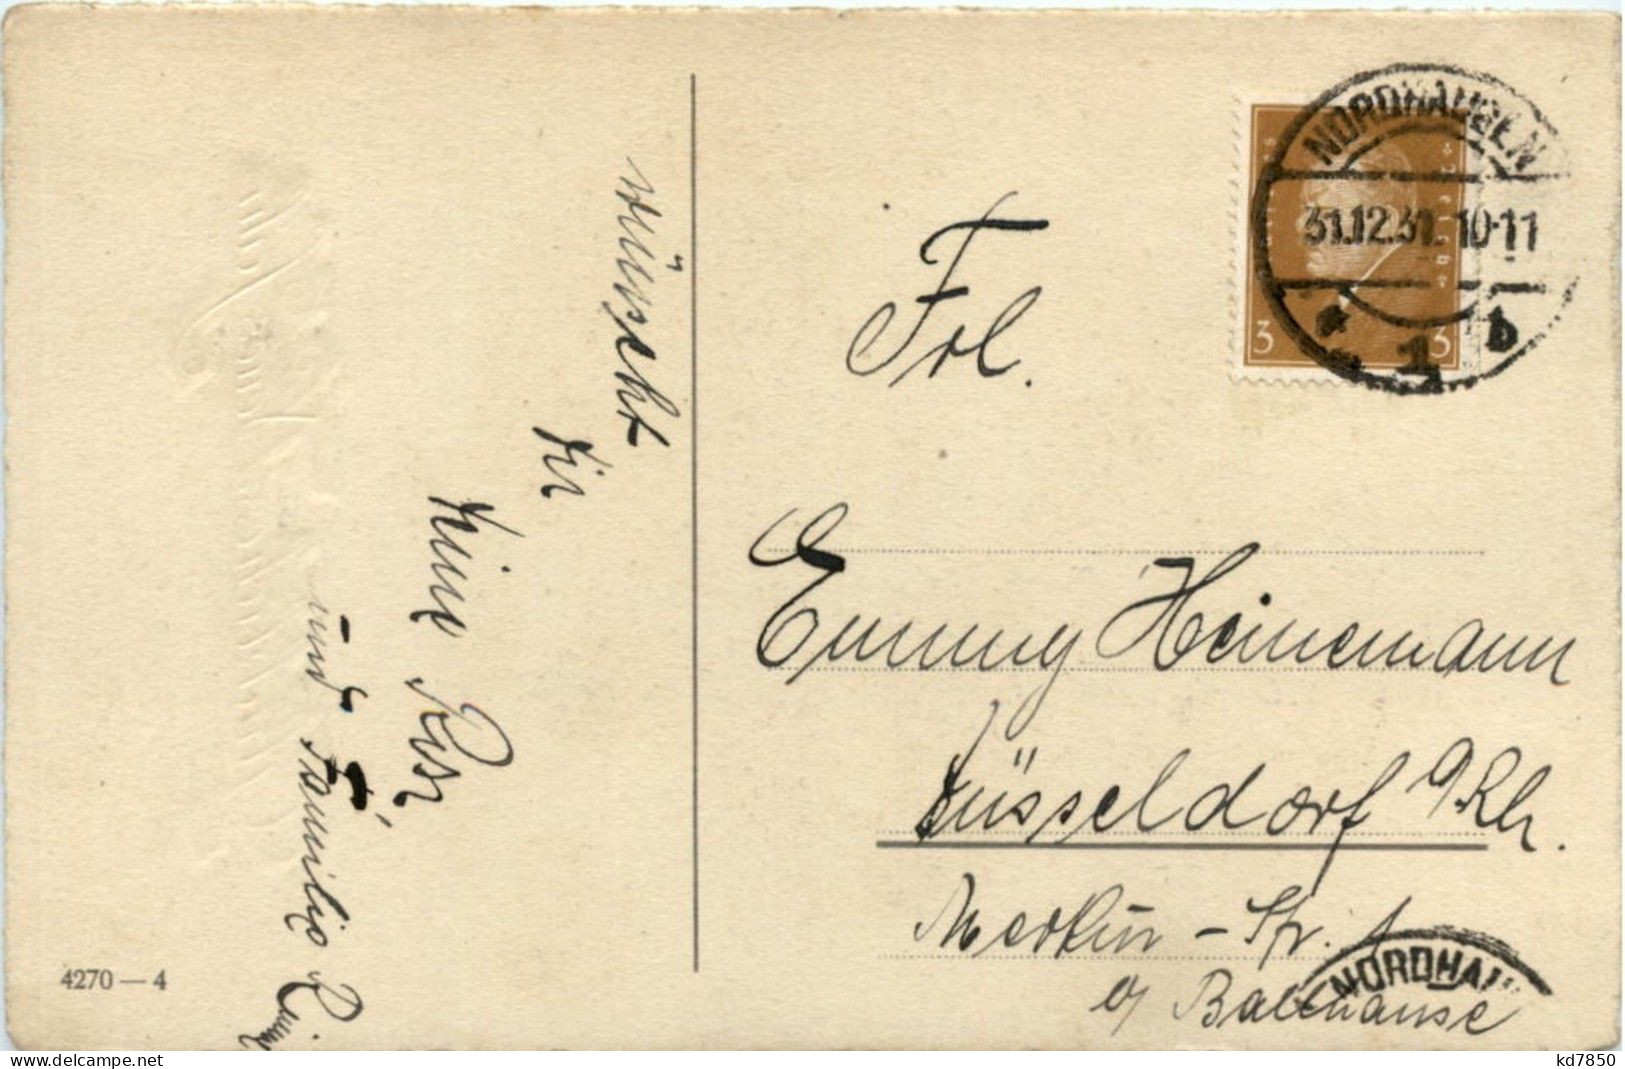 wünscht
Dir
Deine
und Familie
4270 — 4
NORDHAUSEN
31.12.31. 10-11
* 1 b
3 3
Frl.
Emmy Heinemann
Düsseldorf a/Rh.
Merkur - Str.
b/ Balthause
NORDHAU
kd7850